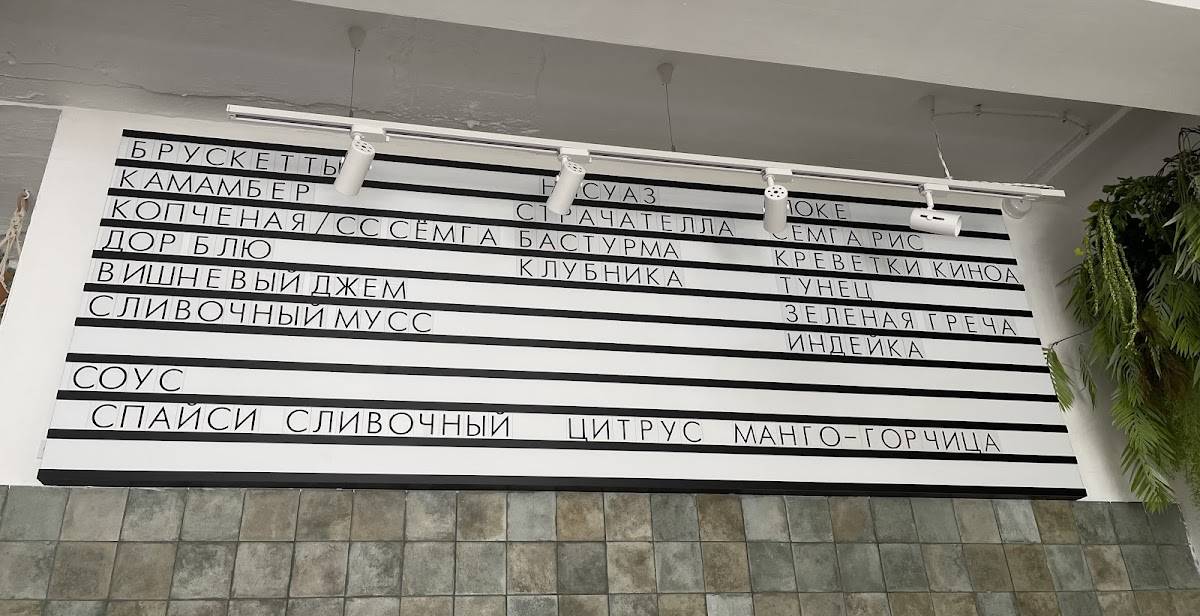 БРУСКЕТТЫ
КАМАМБЕР
КОПЧЕНАЯ/СС СЁМГА
ДОР БЛЮ
ВИШНЕВЫЙ ДЖЕМ
СЛИВОЧНЫЙ МУСС
СТРАЧАТЕЛЛА
БАСТУРМА
КЛУБНИКА
СЕМГА РИС
КРЕВЕТКИ КИНОА
ТУНЕЦ
ЗЕЛЕНАЯ ГРЕЧА
ИНДЕЙКА
СОУС
СПАЙСИ СЛИВОЧНЫЙ ЦИТРУС МАНГО-ГОРЧИЦА